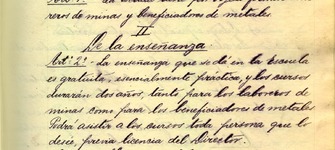 reros de minas y beneficiadores de metales
II
De la enseñanza.
Artº 2º - La enseñanza que se dé en la Escuela
es gratuita, esencialmente práctica, y los cursos
durarán dos años, tanto para los laboreros de
minas como para los beneficiadores de metales
Podrá asistir a los cursos toda persona que lo
desee, previa licencia del Director.